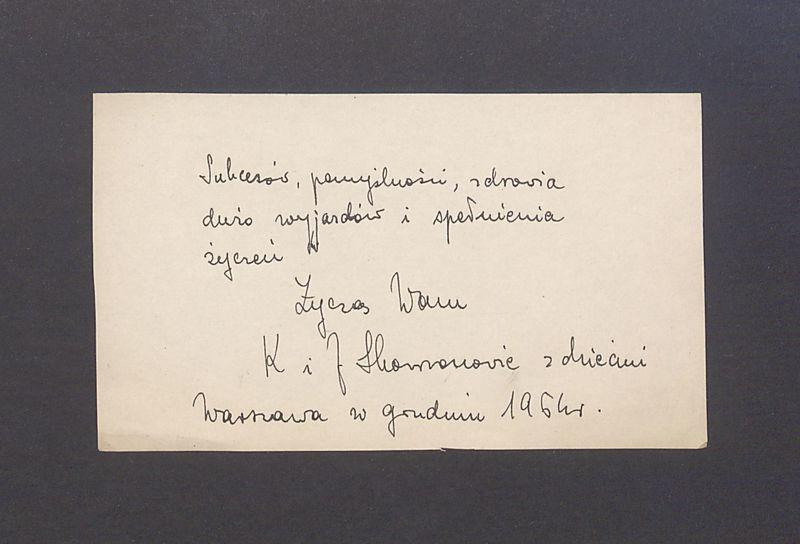 Sukcesów, pomyślności, zdrowia
dużo wyjazdów i spełnienia
życzeń
Życzą Wam
K i J z dziećmi
Warszawa w grudniu 1964r.